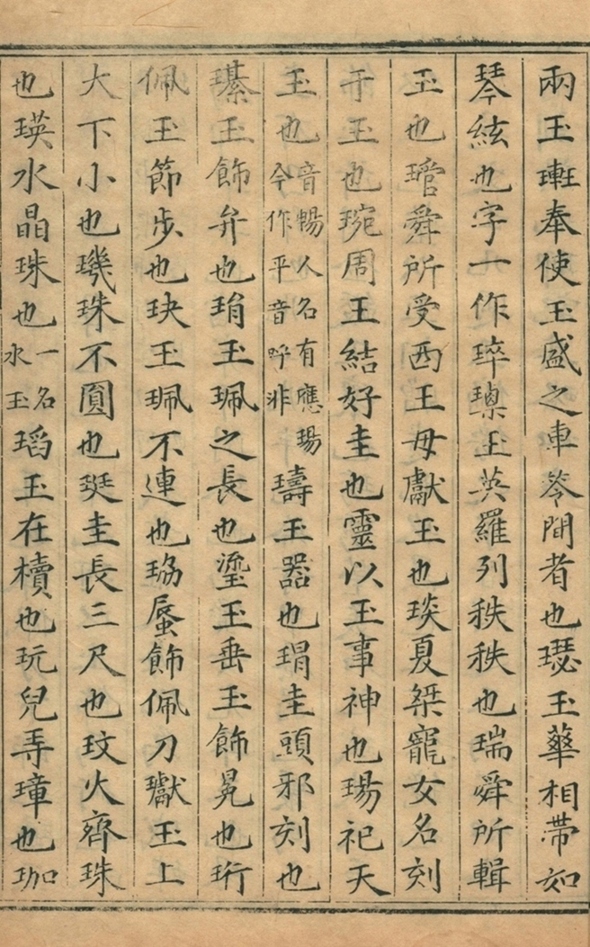 兩玉奉使玉盛之車笭間者也璱玉華相帶如
琴絃也字一作琗瑮玉英羅列秩秩也瑞舜所輯
玉也琯舜所受西王母獻玉也琰夏桀寵女名刻
于玉也琬周王結好圭也靈以玉事神也瑒祀天
玉也音暢人名有應瑒今作平音呼非璹玉器也瑁圭頭邪刻也
玉飾弁也琄玉珮之長也瑬玉垂玉飾冕也珩
佩玉節步也玦玉珮不連也珕蜃飾佩刀瓛玉上
大下小也璣珠不圓也珽圭長三尺也玟火齊珠
也瑛水晶珠也一名水玉瑫玉在櫝也玩兒弄璋也珈